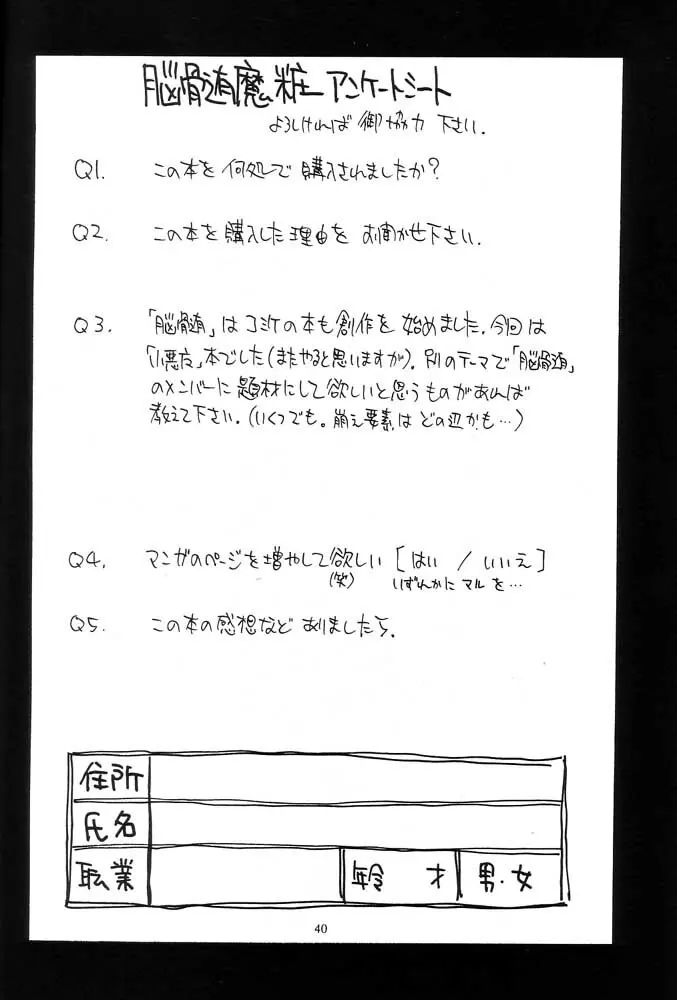 脳骨髄魔粧 アンケートシート
よろしければ 御協力 下さい.
Q1. この本を何処で購入されましたか?
Q2. この本を購入した理由を お聞かせ下さい.
Q3. 「脳骨髄」はコミケの本も創作を始めました. 今回は
「小悪魔」本でした(またやると思いますが). 別のテーマで「脳骨髄」
のメンバーに題材にして欲しいと思うものがあれば
教えて下さい. (いくつでも。崩え要素はどの辺かも…)
Q4. マンガのページを増やして欲しい [はい / いいえ]
(笑) いずれかに マルを…
Q5. この本の感想など ありましたら.
住所
氏名
職業 年令 才 男・女
40